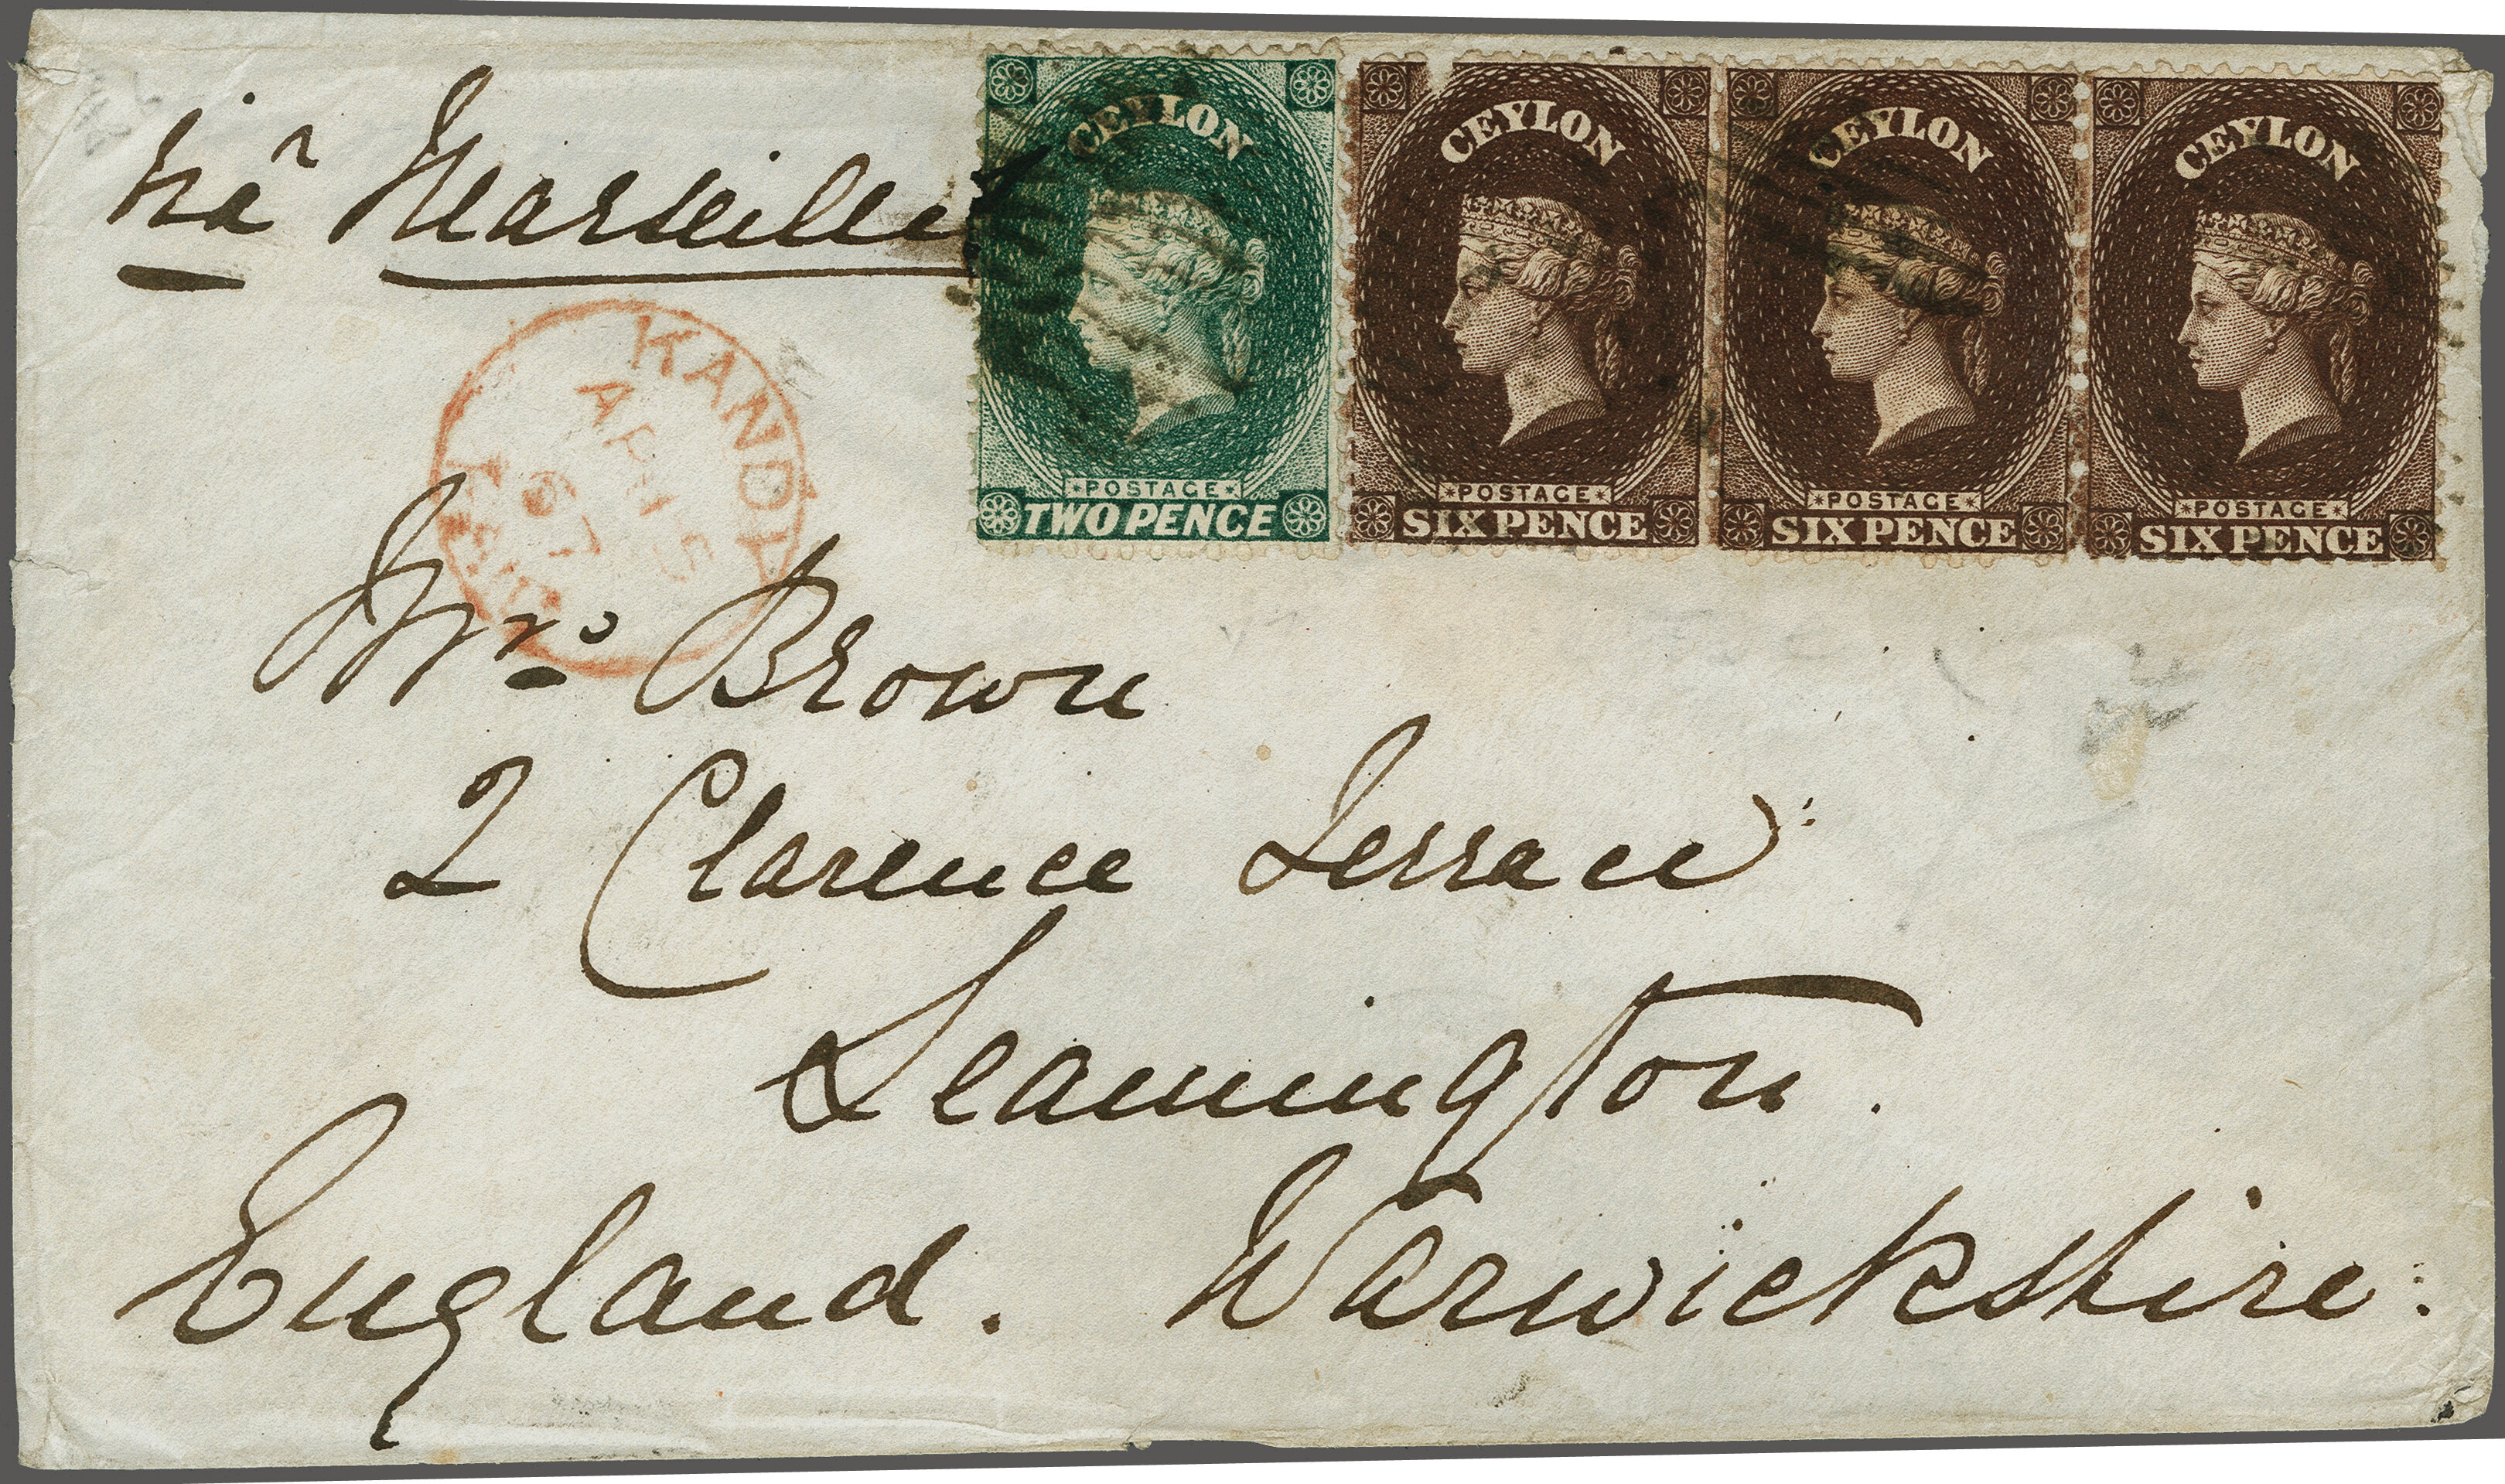 via Marseilles
CEYLON
POSTAGE
TWO PENCE
CEYLON
POSTAGE
SIX PENCE
CEYLON
POSTAGE
SIX PENCE
CEYLON
POSTAGE
SIX PENCE
KANDY
AP 15
67
PAID
Mrs. Brown
2 Clarence Terrace
Leamington.
England. Warwickshire.